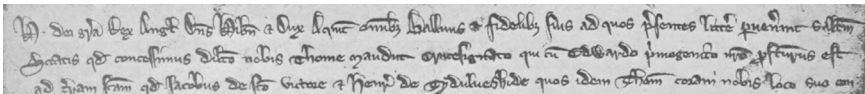 H. dei gra Rex Angl Dns Hibn & Dux Aquit omibz Ballivis & fidelibz suis ad quos psentes littre pvenerint saltm
Sciatis qd concessimus dilco nobis Thome Maudut crucesignato qui cu Edwardo pmogenito nro pfecturus est
ad tram scam qd Jacobus de sco Victore & Henr de Tydulveshide quos idem Thom coram nobis loco suo con